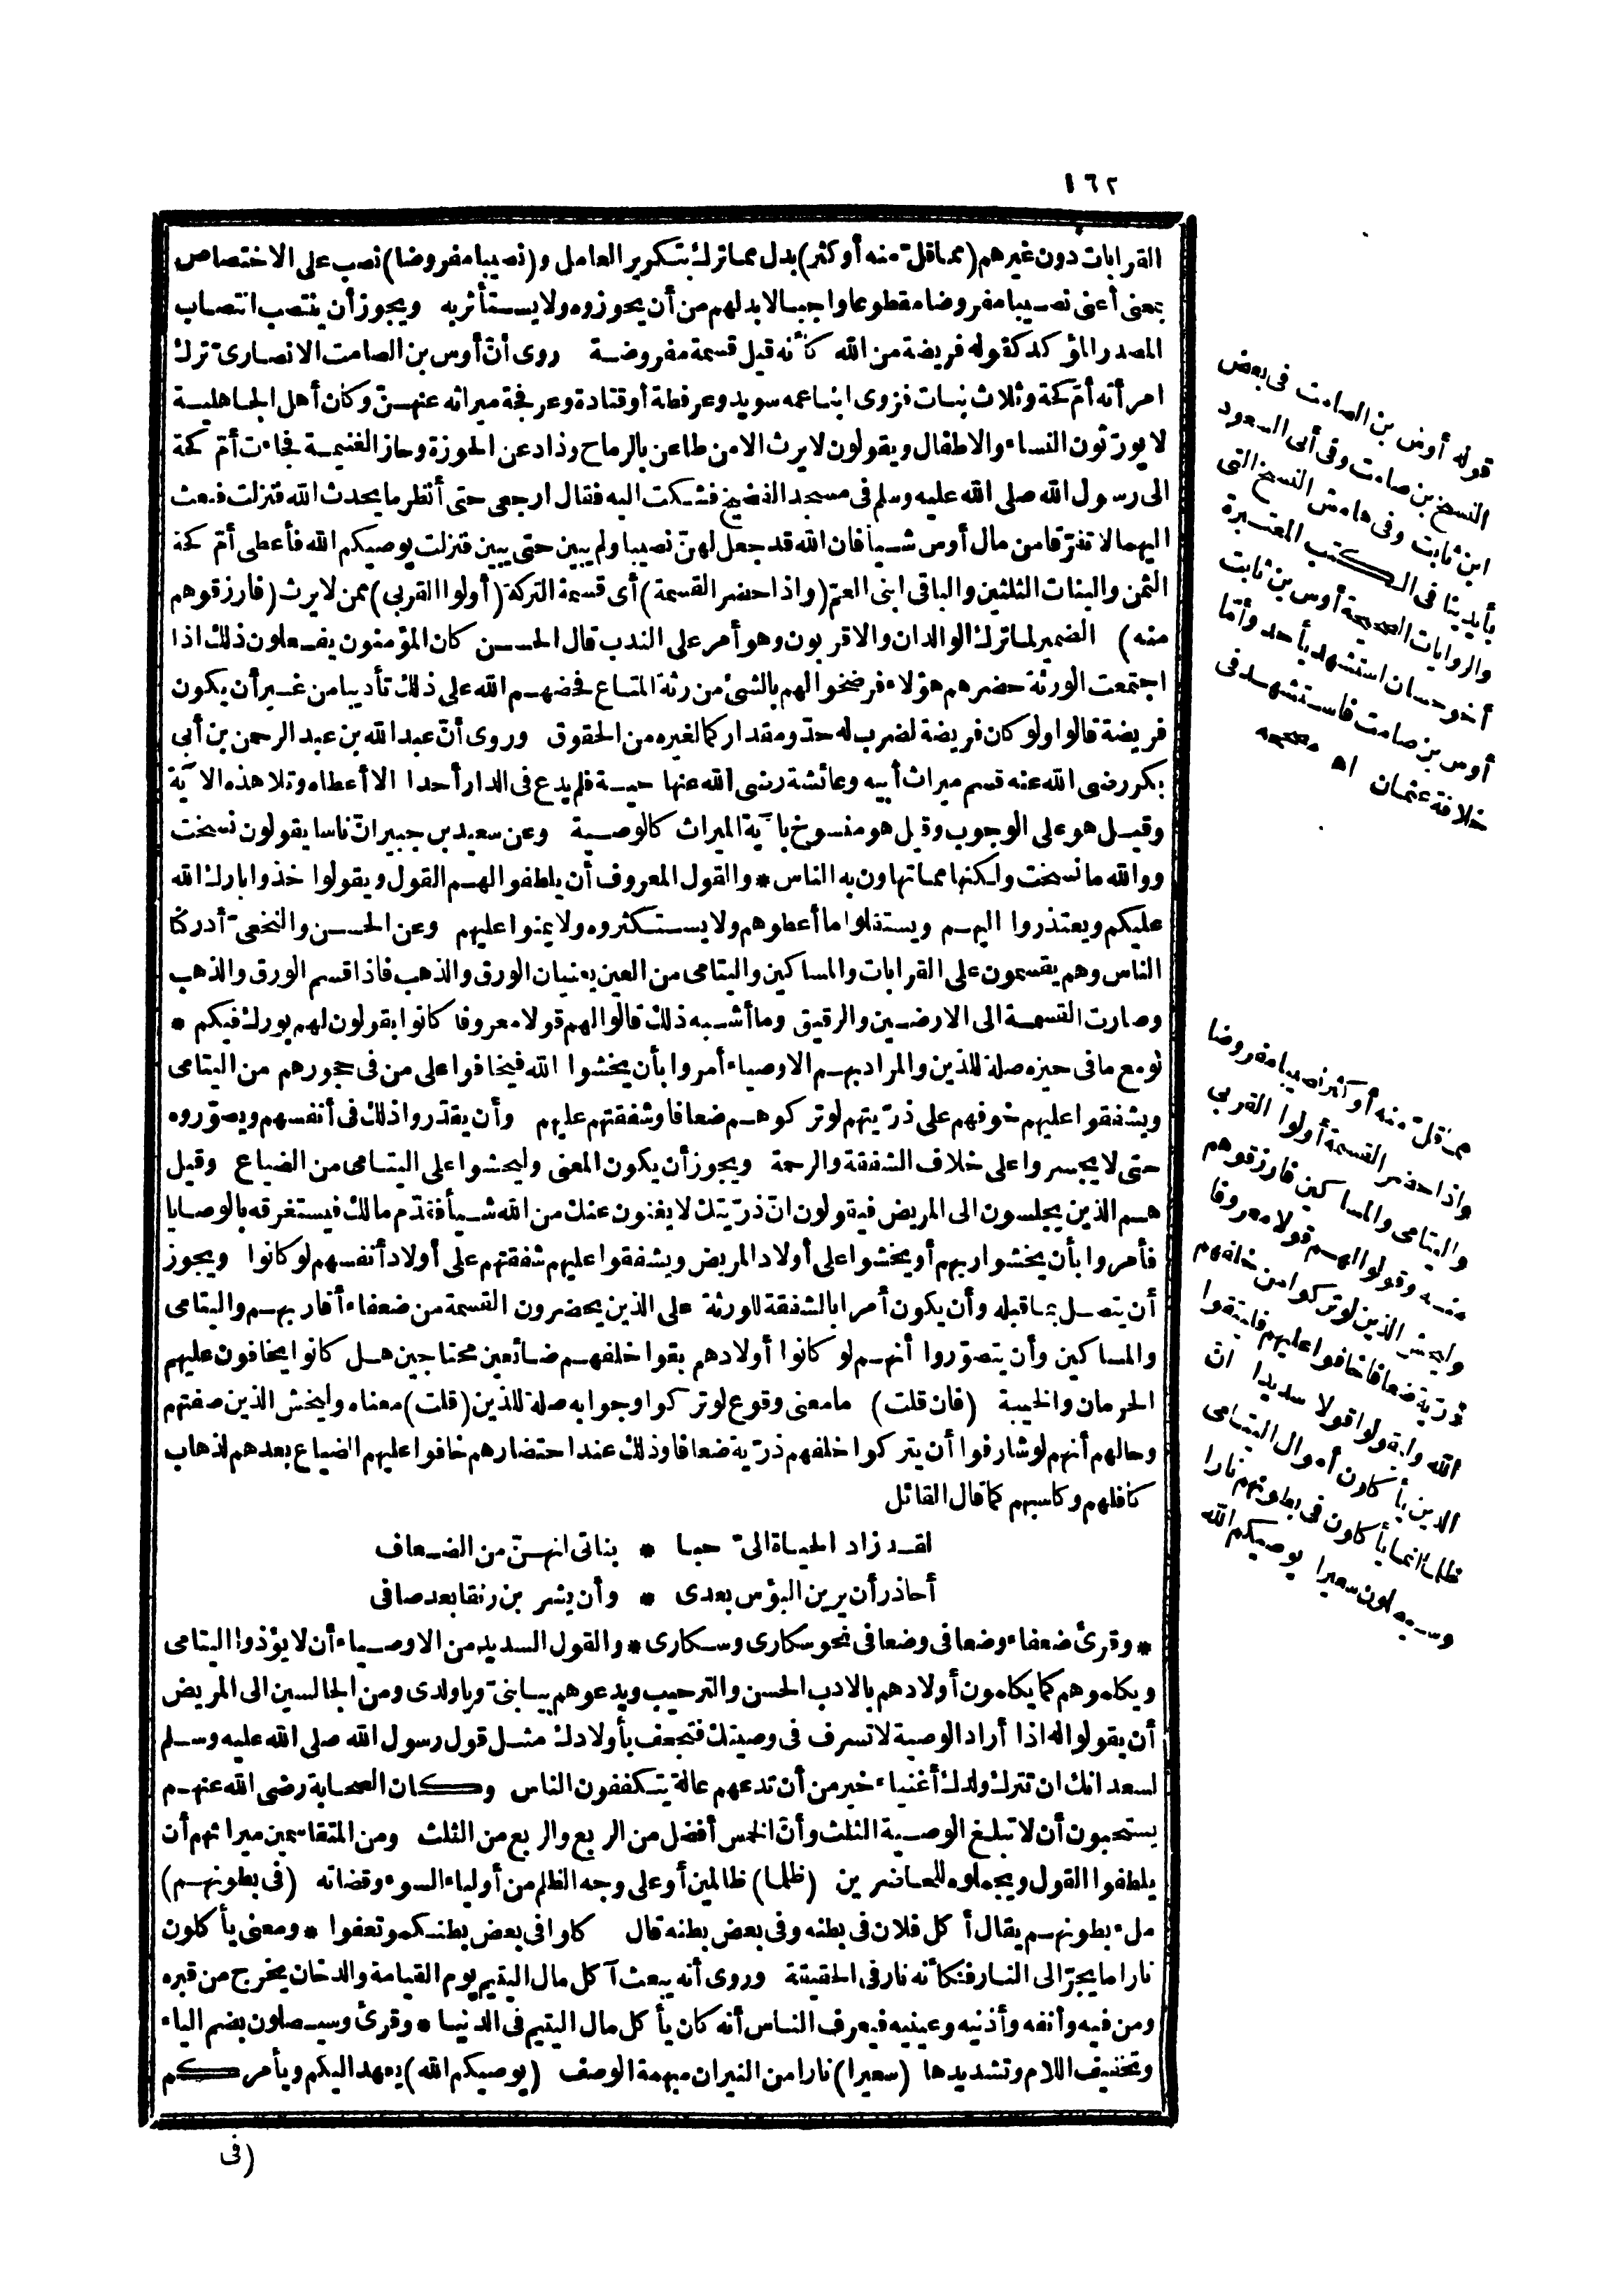 ١٦٢
القرابات دون غيرهم (مما قلّ منه أو كثر) بدل مما ترك بتكرير العامل و (نصيبا مفروضا) نصب على الاختصاص
بمعنى أعنى نصيبا مفروضا مقطوعا واجبا لا بد لهم من أن يحوزوه ولا يستأثر به ويجوز أن ينتصب انتصاب
المصدر المؤكد كقوله فريضة من الله كأنه قيل قسمة مفروضة روى أنّ أوس بن الصامت الانصارىّ ترك
امرأته أمّ كحة وثلاث بنات فزوى ابنا عمه سويد وعرفطة أو قتادة وعرفجة ميراثه عنهنّ وكان أهل الجاهلية
لا يورّثون النساء والاطفال ويقولون لا يرث الا من طاعن بالرماح وذاد عن الحوزة وحاز الغنيمة فجاءت أمّ كحة
الى رسول الله صلى الله عليه وسلم فى مسجد الفضيخ فشكت اليه فقال ارجعى حتى أنظر ما يحدث الله فنزلت فبعث
اليهما لا تفرّقا من مال أوس شيأ فان الله قد جعل لهنّ نصيبا ولم يبين حتى يبين فنزلت يوصيكم الله فأعطى أمّ كحة
الثمن والبنات الثلثين والباقى ابنى العمّ (واذا حضر القسمة) أى قسمة التركة (أولوا القربى) ممن لا يرث (فارزقوهم
منه) الضمير لما ترك الوالدان والاقربون وهو أمر على الندب قال الحسن كان المؤمنون يفعلون ذلك اذا
اجتمعت الورثة حضرهم هؤلاء فرضخوا لهم بالشئ من رثة المتاع فحضهم الله على ذلك تأديبا من غير أن يكون
فريضة قالوا ولو كان فريضة لضرب له حدّ ومقدار كما لغيره من الحقوق وروى أنّ عبد الله بن عبد الرحمن بن أبى
بكر رضى الله عنه قسم ميراث أبيه وعائشة رضى الله عنها حية فلم يدع فى الدار أحدا الا أعطاه وتلا هذه الآية
وقيل هو على الوجوب وقيل هو منسوخ بآية الميراث كالوصية وعن سعيد بن جبير انّ ناسا يقولون نسخت
ووالله ما نسخت ولكنها مما تهاون به الناس * والقول المعروف أن يلطفوا لهم القول ويقولوا خذوا بارك الله
عليكم ويعتذروا اليهم ويستقلوا ما أعطوهم ولا يستكثروه ولا يمنوا عليهم وعن الحسن والنخعىّ أدركنا
الناس وهم يقسمون على القرابات والمساكين واليتامى من العين يعنيان الورق والذهب فاذا قسم الورق والذهب
وصارت القسمة الى الارضين والرقيق وما أشبه ذلك قالوا لهم قولا معروفا كانوا يقولون لهم بورك فيكم *
لو مع ما فى حيزه صلة للذين والمراد بهم الاوصياء أمروا بأن يخشوا الله فيخافوا على من فى حجورهم من اليتامى
ويشفقوا عليهم خوفهم على ذرّيتهم لو تركوهم ضعافا وشفقتهم عليهم وأن يقدّروا ذلك فى أنفسهم ويصوّروه
حتى لا يجسروا على خلاف الشفقة والرحمة ويجوز أن يكون المعنى وليخشوا على اليتامى من الضياع وقيل
هم الذين يجلسون الى المريض فيقولون انّ ذرّيتك لا يغنون عنك من الله شيأ فقدّم مالك فيستغرقه بالوصايا
فأمروا بأن يخشوا ربهم أو يخشوا على أولاد المريض ويشفقوا عليهم شفقتهم على أولاد أنفسهم لو كانوا ويجوز
أن يتصل بما قبله وأن يكون أمرا بالشفقة للورثة على الذين يحضرون القسمة من ضعفاء أقاربهم واليتامى
والمساكين وأن يتصوّروا أنهم لو كانوا أولادهم بقوا خلفهم ضائعين محتاجين هل كانوا يخافون عليهم
الحرمان والخيبة (فان قلت) ما معنى وقوع لو تركوا وجوابه صلة للذين (قلت) معناه وليخش الذين صفتهم
وحالهم أنهم لو شارفوا أن يتركوا خلفهم ذرّية ضعافا وذلك عند احتضارهم خافوا عليهم الضياع بعدهم لذهاب
كافلهم وكاسبهم كما قال القائل
لقد زاد الحياة الىّ حبا * بناتى انهنّ من الضعاف
أحاذر أن يرين البؤس بعدى * وأن يشربن رنقا بعد صافى
* وقرئ ضعفاء وضعافى وضعافى نحو سكارى وسكارى * والقول السديد من الاوصياء أن لا يؤذوا اليتامى
ويكلموهم كما يكلمون أولادهم بالادب الحسن والترحيب ويدعوهم بيا بنىّ ويا ولدى ومن الجالسين الى المريض
أن يقولوا له اذا أراد الوصية لا تسرف فى وصيتك فتجحف بأولادك مثل قول رسول الله صلى الله عليه وسلم
لسعد انك ان تترك ولدك أغنياء خير من أن تدعهم عالة يتكففون الناس وكان الصحابة رضى الله عنهم
يستحبون أن لا تبلغ الوصية الثلث وأنّ الخمس أفضل من الربع والربع من الثلث ومن المتقاسمين ميراثهم أن
يلطفوا القول ويجملوه للحاضرين (ظلما) ظالمين أو على وجه الظلم من أولياء السوء وقضاته (فى بطونهم)
ملء بطونهم يقال أكل فلان فى بطنه وفى بعض بطنه قال كلوا فى بعض بطنكمو تعفوا * ومعنى يأكلون
نارا ما يجرّ الى النار فكأنه نار فى الحقيقة وروى أنه يبعث آكل مال اليتيم يوم القيامة والدخان يخرج من قبره
ومن فيه وأنفه وأذنيه وعينيه فيعرف الناس أنه كان يأكل مال اليتيم فى الدنيا * وقرئ وسيصلون بضم الياء
وتخفيف اللام وتشديدها (سعيرا) نارا من النيران مبهمة الوصف (يوصيكم الله) يعهد اليكم ويأمركم
(فى
قوله أوس بن الصامت فى بعض
النسخ بن صامت وفى أبى السعود
ابن ثابت وفى هامش النسخ التى
بأيدينا فى الكتب المعتبرة
والروايات الصحيحة أوس بن ثابت
أخو حسان استشهد بأحد وأمّا
أوس بن صامت فاستشهد فى
خلافة عثمان اه مصححه
مما قلّ منه أو كثر نصيبا مفروضا
واذا حضر القسمة أولوا القربى
واليتامى والمساكين فارزقوهم
منه وقولوا لهم قولا معروفا
وليخش الذين لو تركوا من خلفهم
ذرّية ضعافا خافوا عليهم فليتقوا
الله وليقولوا قولا سديدا انّ
الذين يأكلون أموال اليتامى
ظلما انما يأكلون فى بطونهم نارا
وسيصلون سعيرا يوصيكم الله